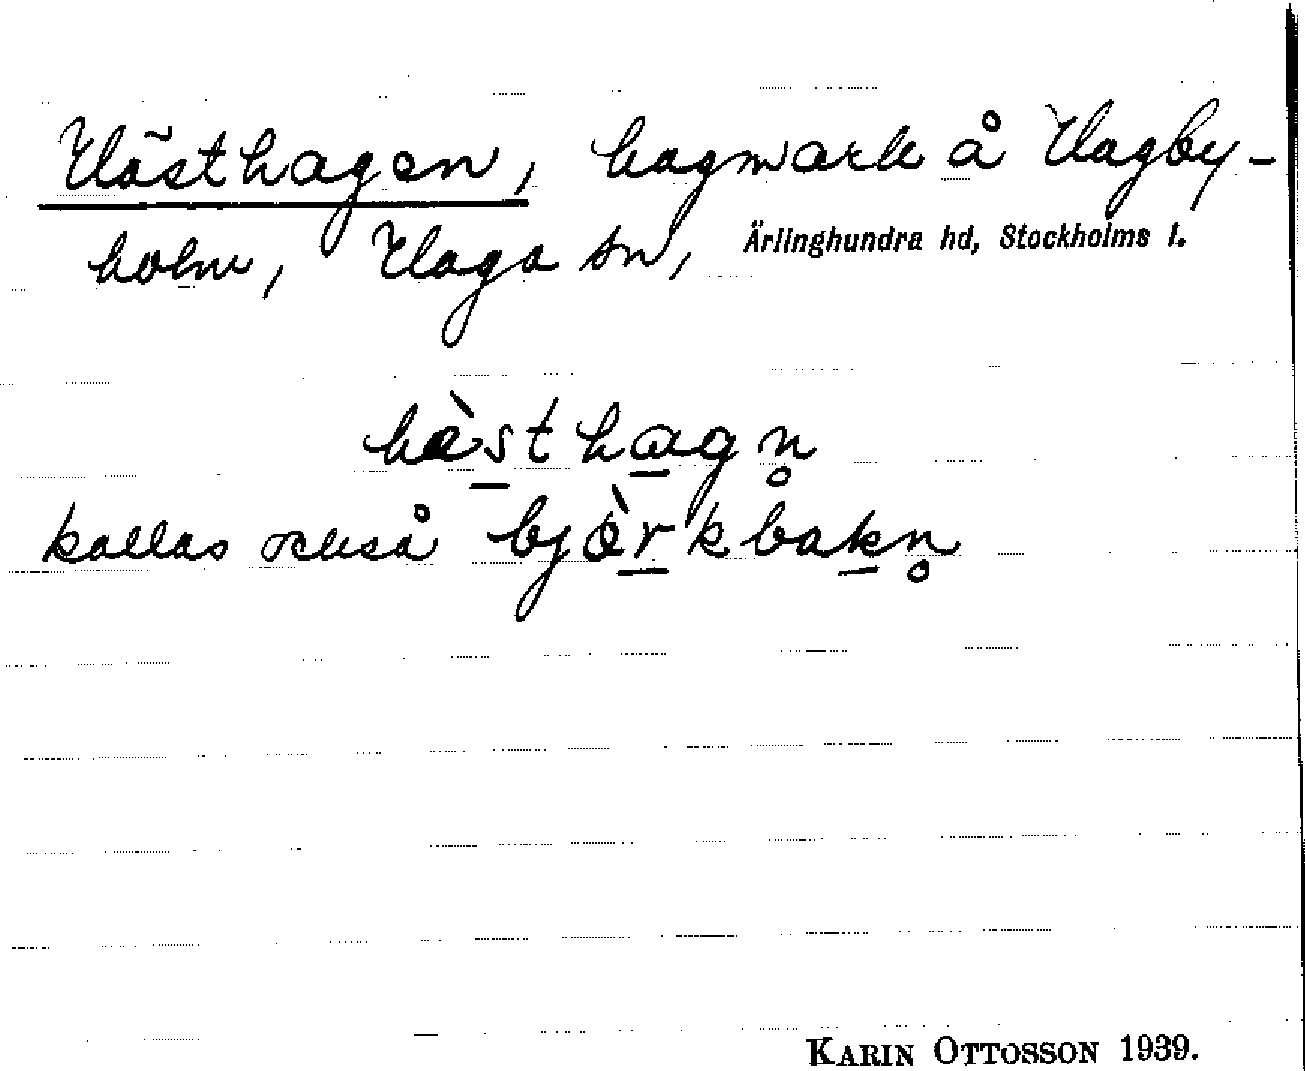 Hästhagen, hagmark å Hagby-
holm, Haga sn, Ärlinghundra hd, Stockholms l.
hä̀s̲tha̲gn̥
kallas också bjö̀r̲kbak̲n̥
KARIN OTTOSSON 1939.